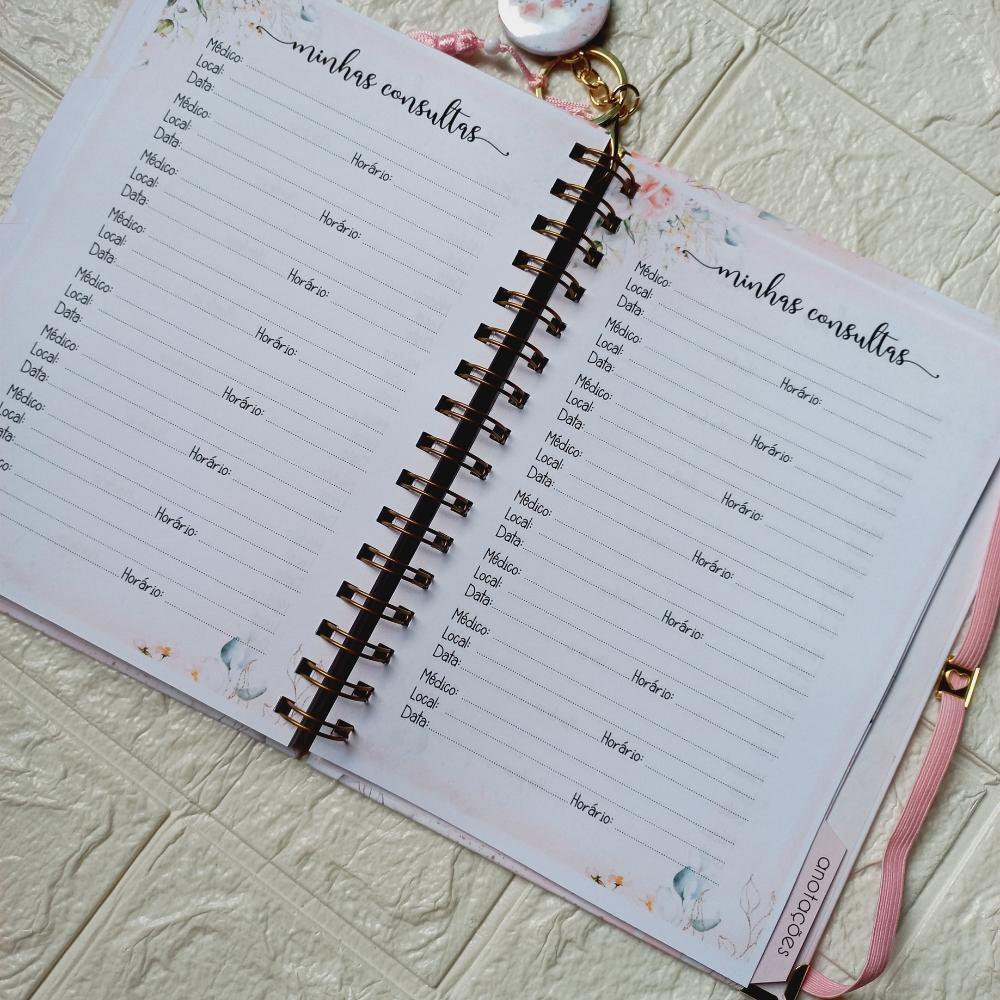 minhas consultas
Médico:
Local:
Data: Horário:
Médico:
Local:
Data: Horário:
Médico:
Local:
Data: Horário:
Médico:
Local:
Data: Horário:
Médico:
Local:
Data: Horário:
Médico:
Local:
Data: Horário:
Médico:
ocal:
ata: Horário:
co:
Horário:
minhas consultas
Médico:
Local:
Data: Horário:
Médico:
Local:
Data: Horário:
Médico:
Local:
Data: Horário:
Médico:
Local:
Data: Horário:
Médico:
Local:
Data: Horário:
Médico:
Local:
Data: Horário:
Médico:
Local:
Data: Horário:
Médico:
Local:
Data: Horário:
anotações